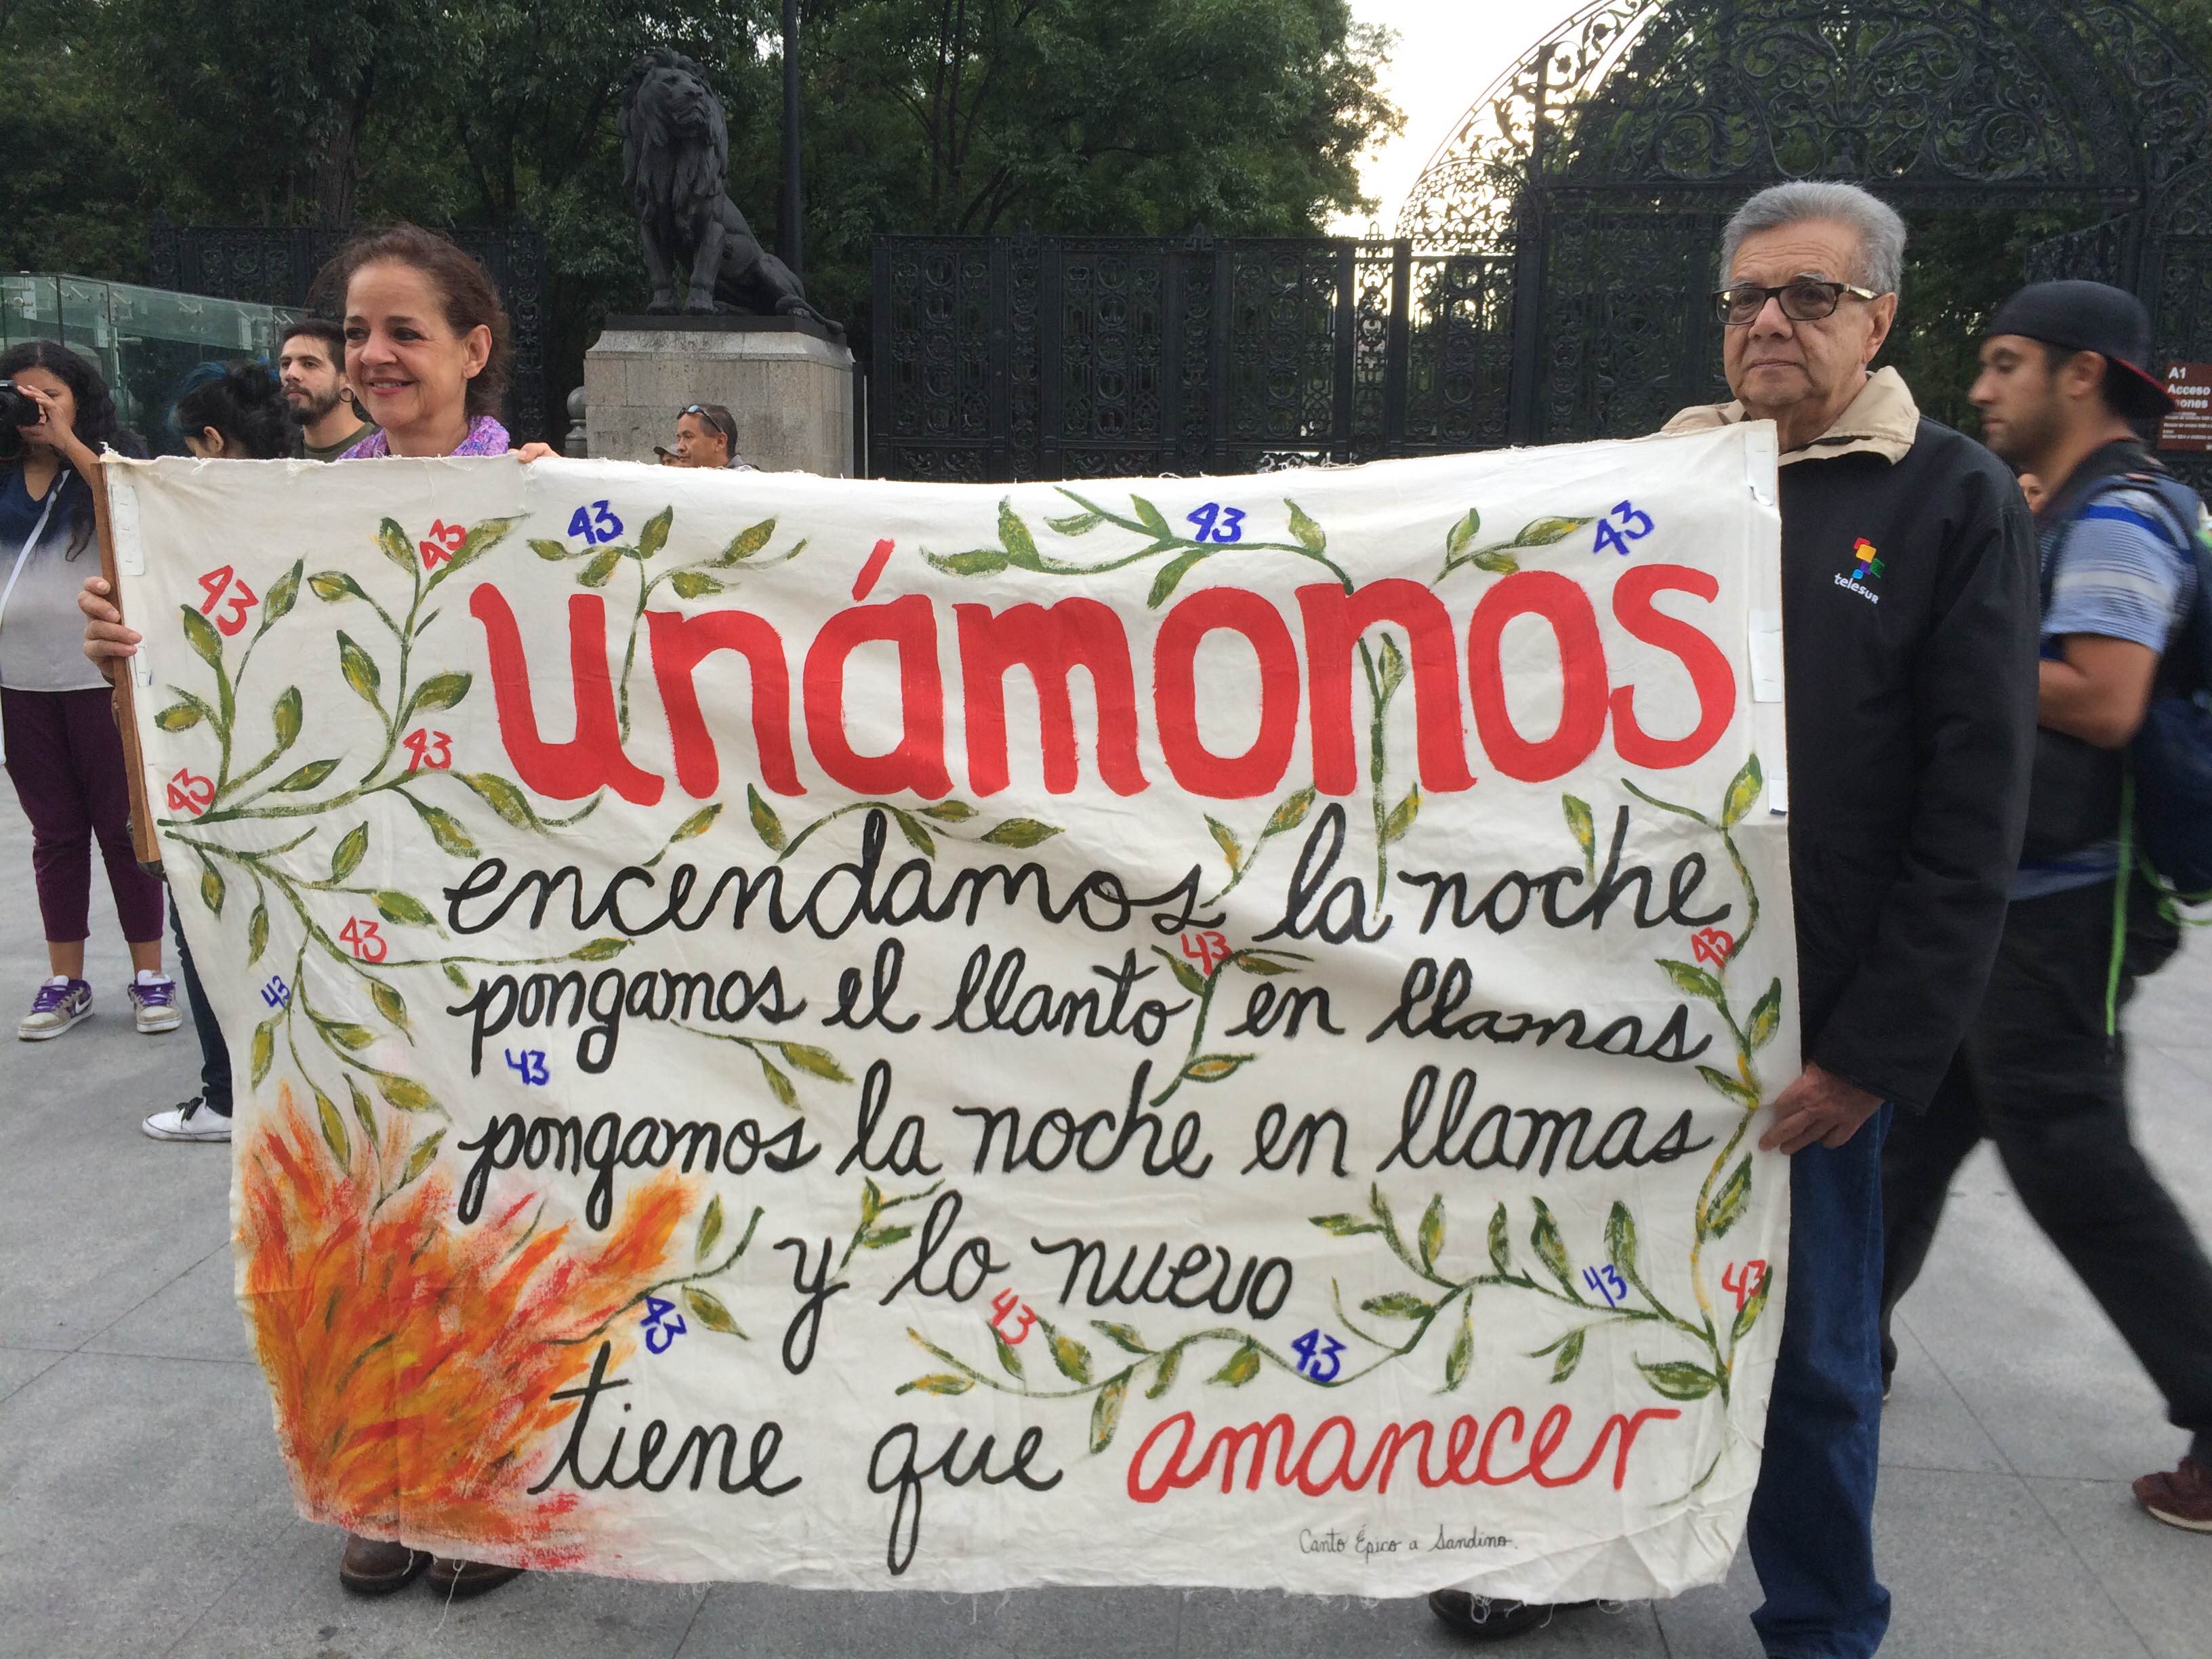 43 43 43 43 43
unámonos
43 43 43
encendamos la noche
43 43 43
pongamos el llanto en llamas
43
43
pongamos la noche en llamas
y lo nuevo
43 43 43 43 43
tiene que amanecer
Canto Épico a Sandino.
teleSUR
A1
Acceso